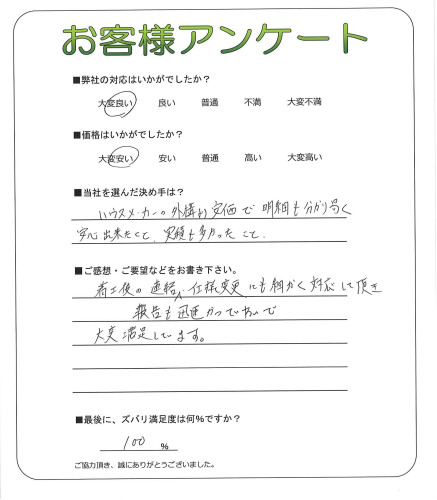 お客様アンケート
■弊社の対応はいかがでしたか？
大変良い 良い 普通 不満 大変不満
■価格はいかがでしたか？
大変安い 安い 普通 高い 大変高い
■当社を選んだ決め手は？
ハウスメーカーの外構より安価で明細も分かり易く
安心出来たこと、実績も多かったこと。
■ご感想・ご要望などをお書き下さい。
着工後の連絡、仕様変更にも細かく対応して頂き
報告も迅速かつていねいで
大変満足しています。
■最後に、ズバリ満足度は何％ですか？
100 ％
ご協力頂き、誠にありがとうございました。